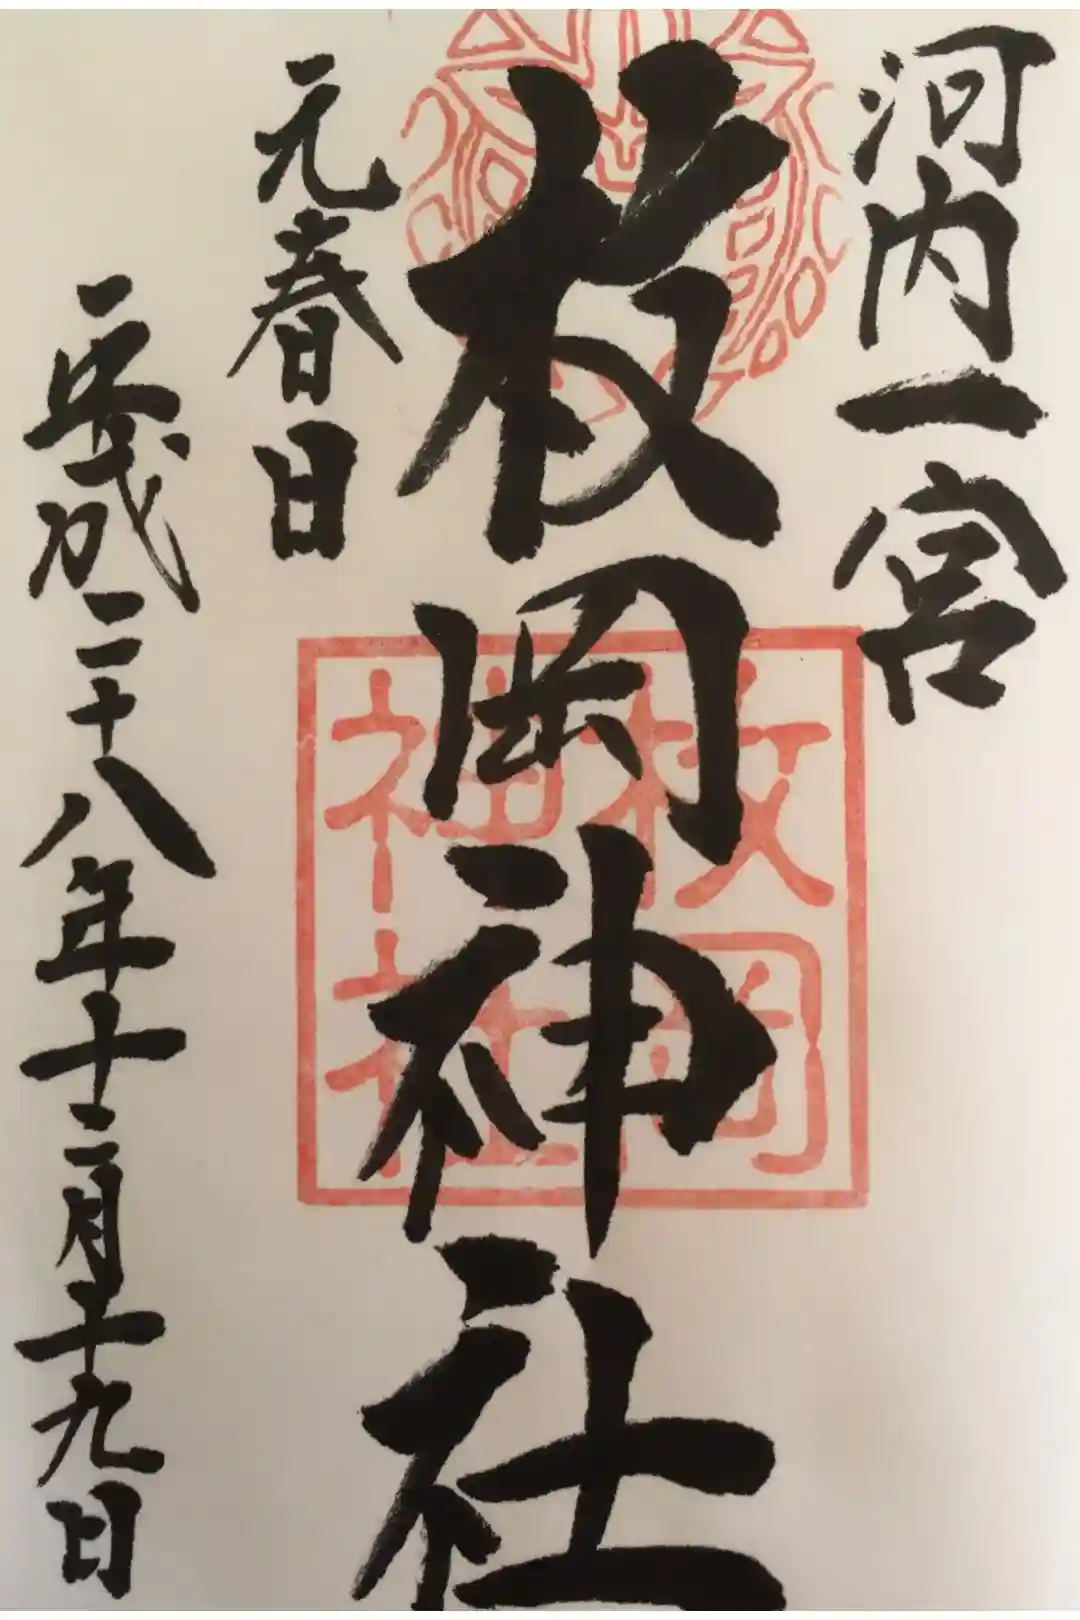 河内一宮
枚岡神社
元春日
平成二十八年十二月十九日
枚岡
神社